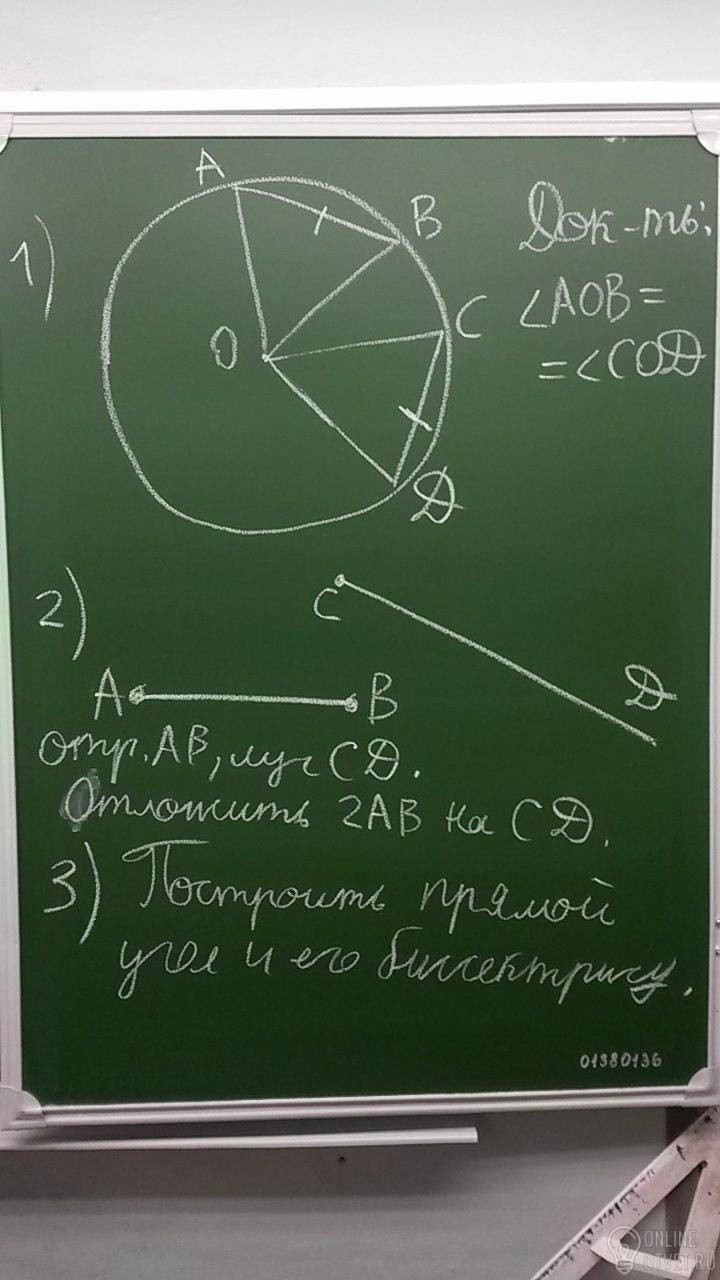 1)
A
B
C
O
D
Док-ть:
∠AOB =
= ∠COD
2)
C
D
A
B
отр. AB, луч CD.
Отложить 2AB на CD.
3) Построить прямой
угол и его биссектрису.
01380136
ONLINE
OTVET.RU